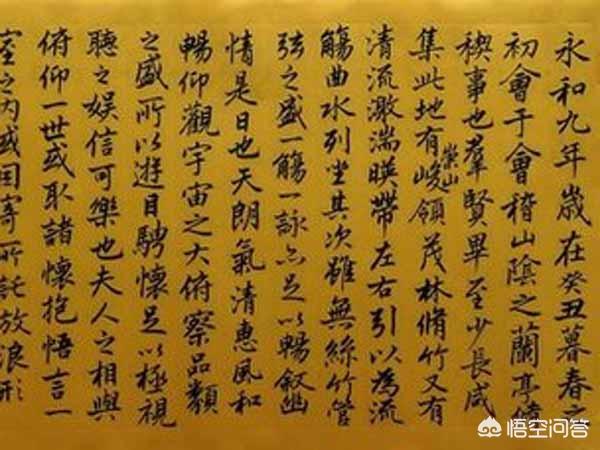 永和九年歲在癸丑暮春之
初會于會稽山陰之蘭亭脩
禊事也羣賢畢至少長咸
集此地有崇山峻領茂林脩竹又有
清流激湍暎帶左右引以為流
觴曲水列坐其次雖無絲竹管
弦之盛一觴一詠亦足以暢叙幽
情是日也天朗氣清惠風和
暢仰觀宇宙之大俯察品類
之盛所以遊目騁懷足以極視
聽之娛信可樂也夫人之相與
俯仰一世或取諸懷抱悟言一
室之內或因寄所託放浪形
悟空问答